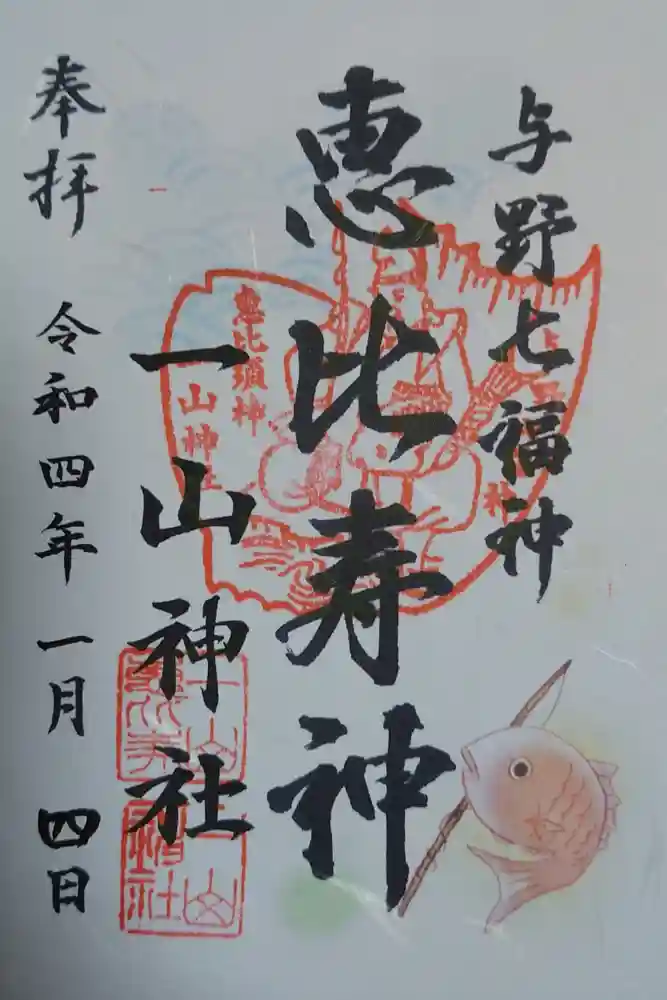 与野七福神
恵比寿神
一山神社
奉拝
令和四年一月四日
恵比須神
一山神社